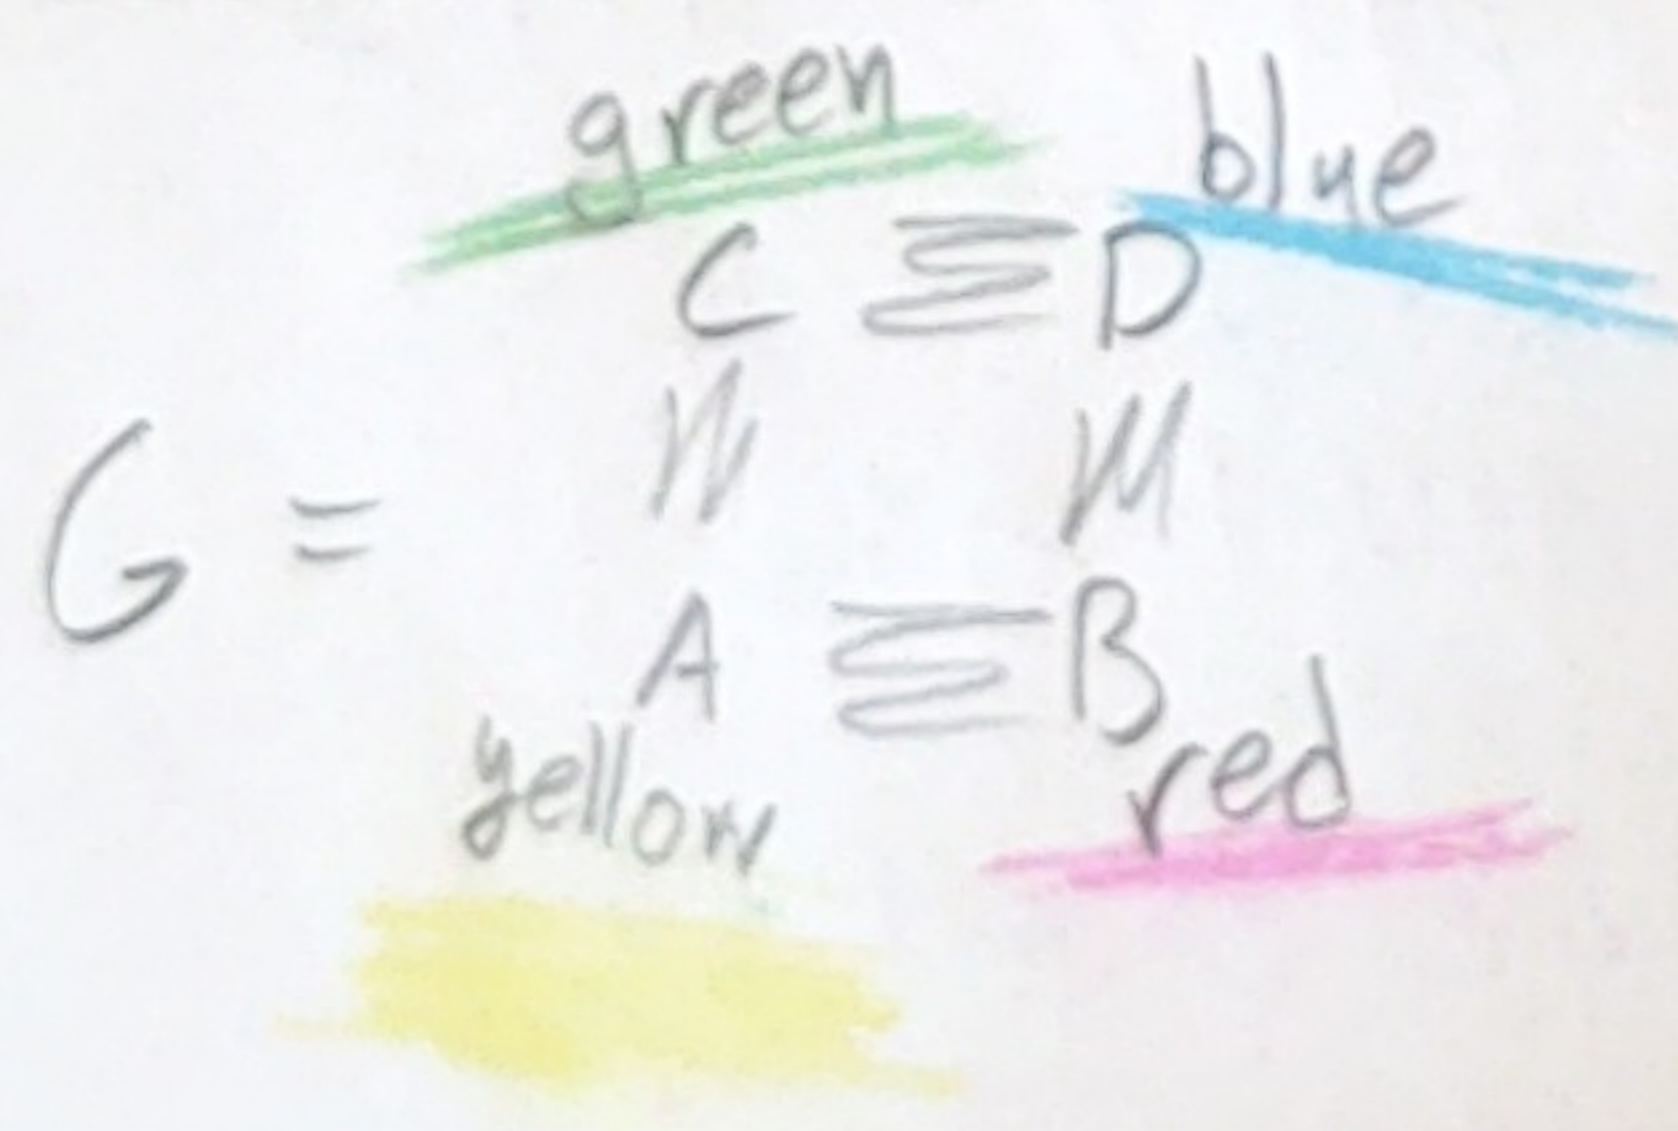 green blue
C ≡ D
G =
A ≡ B
yellow red